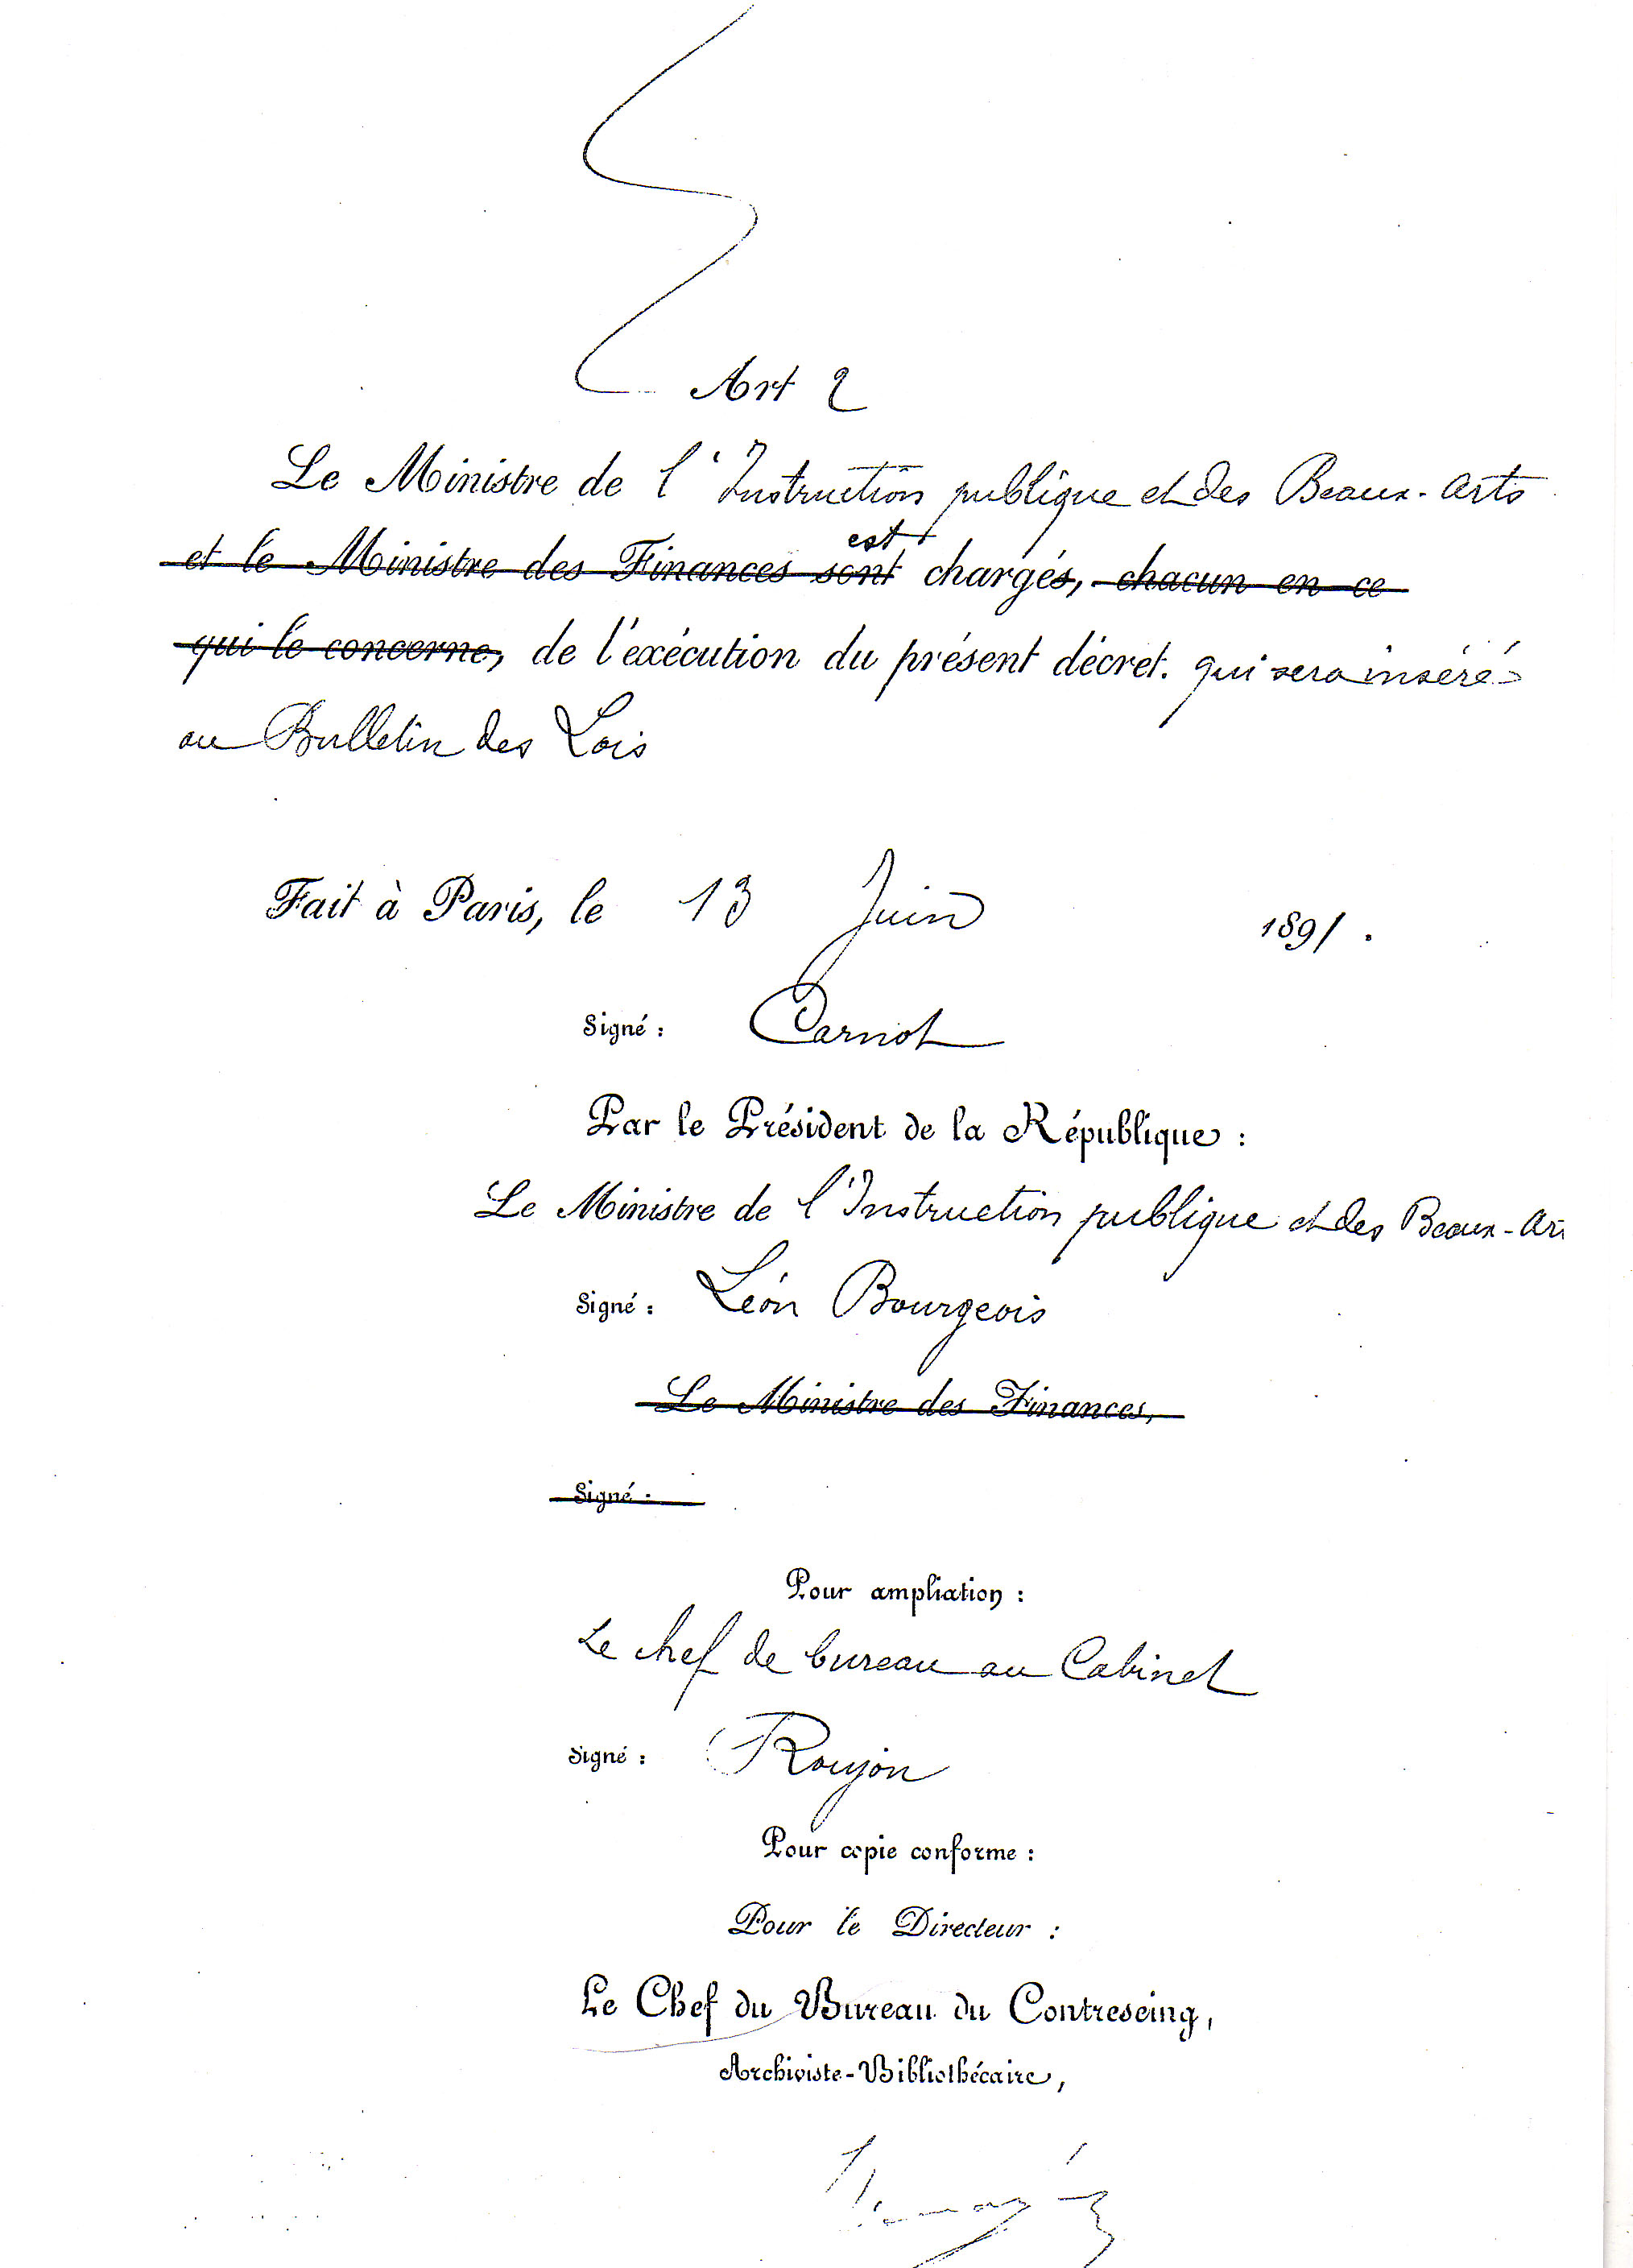 Art 2
Le Ministre de l'Instruction publique et des Beaux-Arts
est
et le Ministre des Finances sont chargés, chacun en ce
qui le concerne, de l'exécution du présent décret. qui sera inséré
au Bulletin des Lois
Fait à Paris, le 13 Juin 1891.
Signé : Carnot
Par le Président de la République :
Le Ministre de l'Instruction publique et des Beaux-Ar
Signé : Léon Bourgeois
Le Ministre des Finances,
Signé :
Pour ampliation :
Le chef de bureau au Cabinet
Signé : Roujon
Pour copie conforme :
Pour le Directeur :
Le Chef du Bureau du Contreseing,
Archiviste-Bibliothécaire,